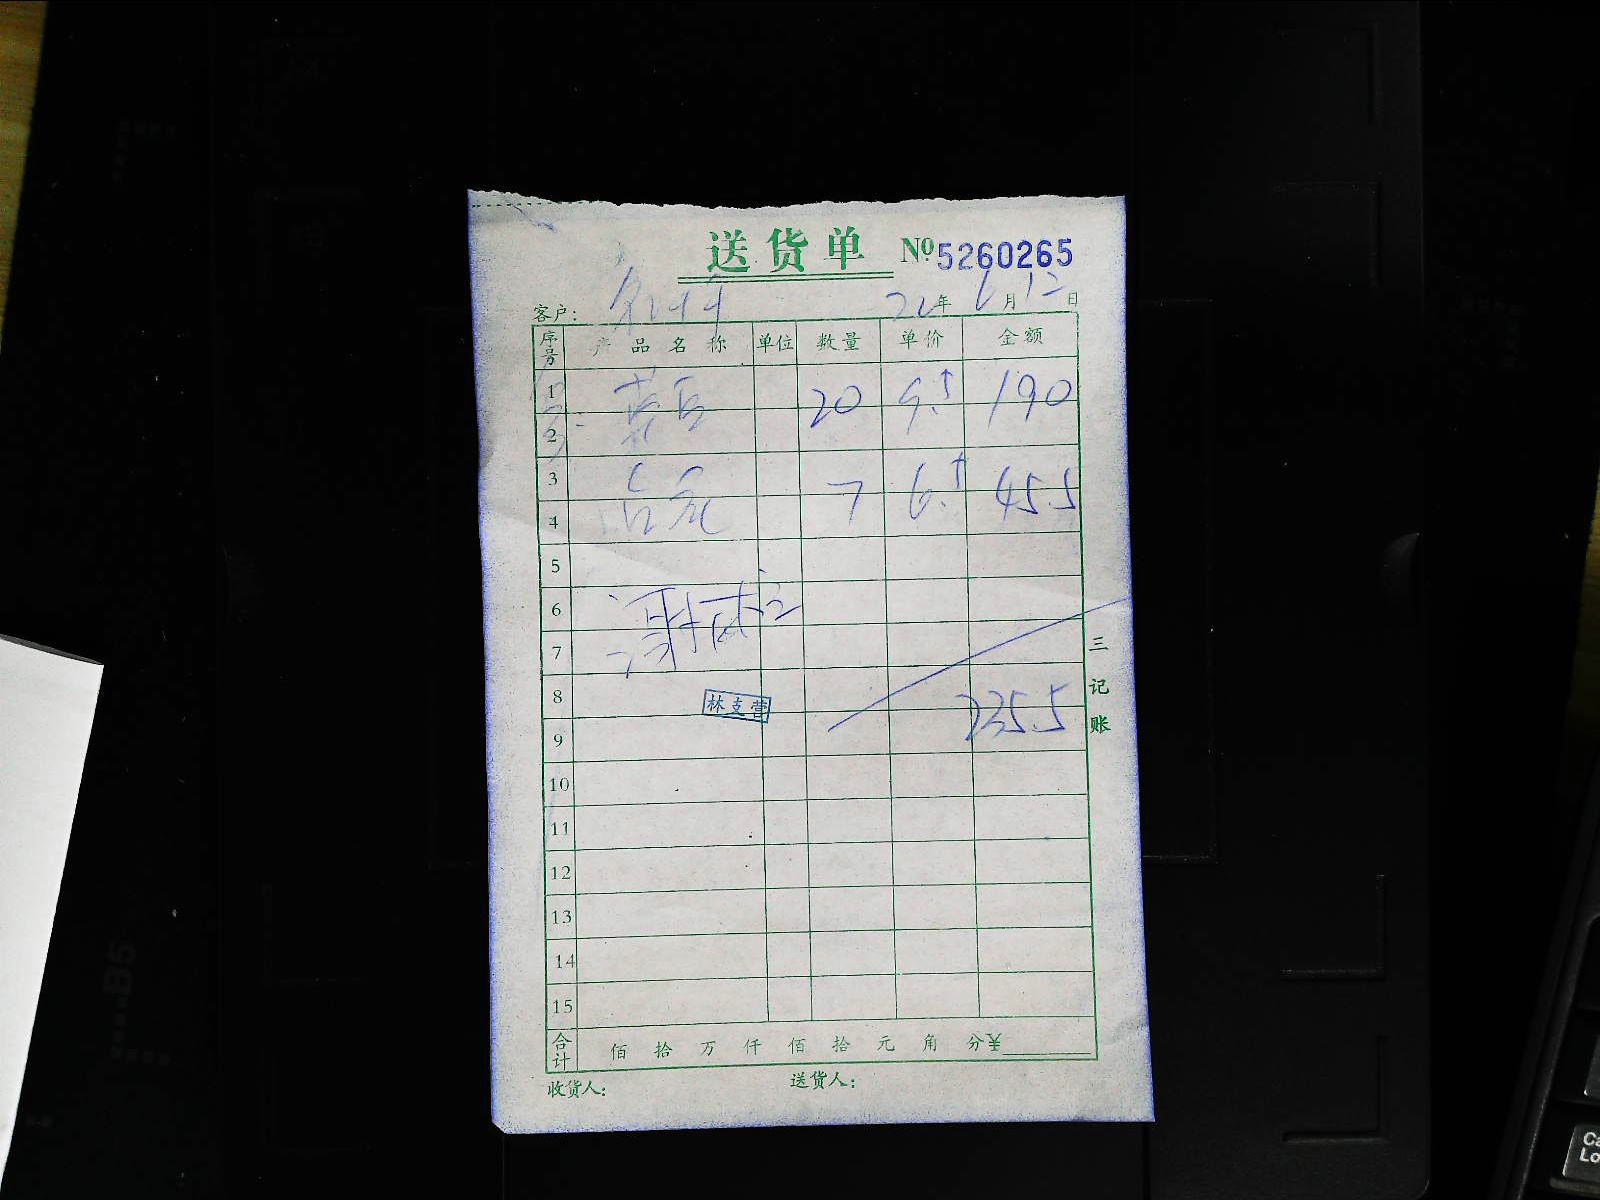 送货单 №5260265
客户: 年 6月12日
序号 产品名称 单位 数量 单价 金额
1 黄豆 20 9.5 190
2
3 7 6.5 45.5
4
5
6
7
8 林支营
235.5
9
10
11
12
13
14
15
合计 佰 拾 万 仟 佰 拾 元 角 分¥
收货人: 送货人:
三记账
B5